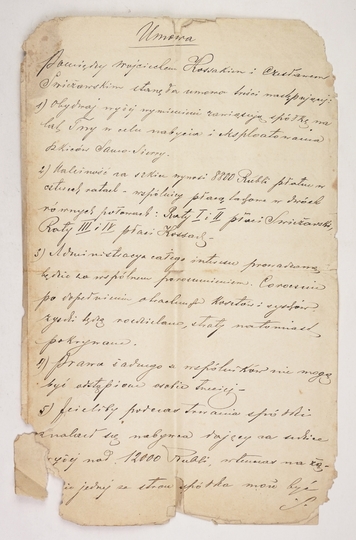 Umowa
Pomiędzy Wojciechem Kossakiem i Czesławem
Świrżawskim stanęła umowa treści następującej:
1) Obydwaj wyżej wymienieni zawiązują spółkę na
lat Trzy w celu nabycia i eksploatowania
szkiców Samo-Sierry.
2) Należność za szkice wynosi 8800 Rubli płatne w
czterech ratach - wspólnicy płacą takowe w dwóch
równych połowach: Raty I i II płaci
Raty III i IV płaci Kossak.
3) Administracya całego interesu prowadzoną
będzie za wspólnem porozumieniem. Corocznie
po dopełnieniu obrachunku kosztów i zysków,
zyski będą rozdzielane, straty natomiast
pokrywane.
4) Prawa żadnego z wspólników nie mogą
być odstąpione osobie trzeciej.-
5) Jeżeliby podczas trwania spółki
znalazł się nabywca dający za szkice
wyżej nad 12000 Rubli, wówczas na
jednej ze stron spółka może być